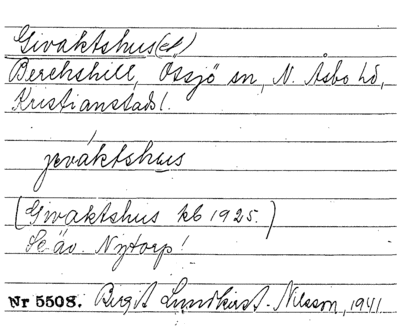 Givaktshus(et)
Berchshill, Össjö sn, N. Åsbo hd,
Kristianstads l.
jeváktshus
(Givaktshus kb 1925.)
Se äv. Nytorp!
Nr 5508. Birgit Lundkvist-Nilsson, 1941